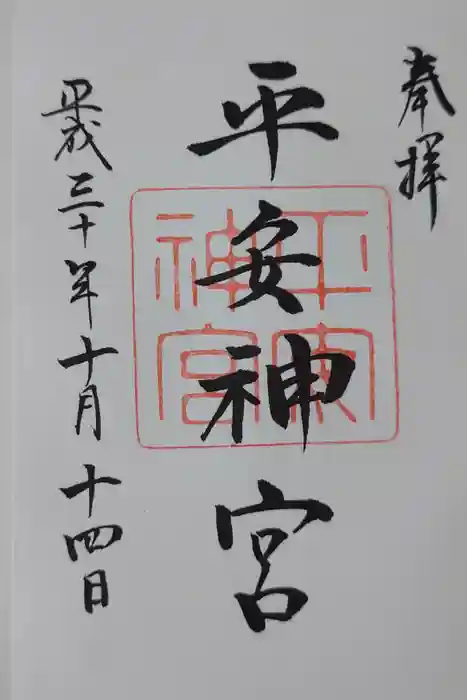 奉拝
平安神宮
平安神宮
平成三十年十月十四日